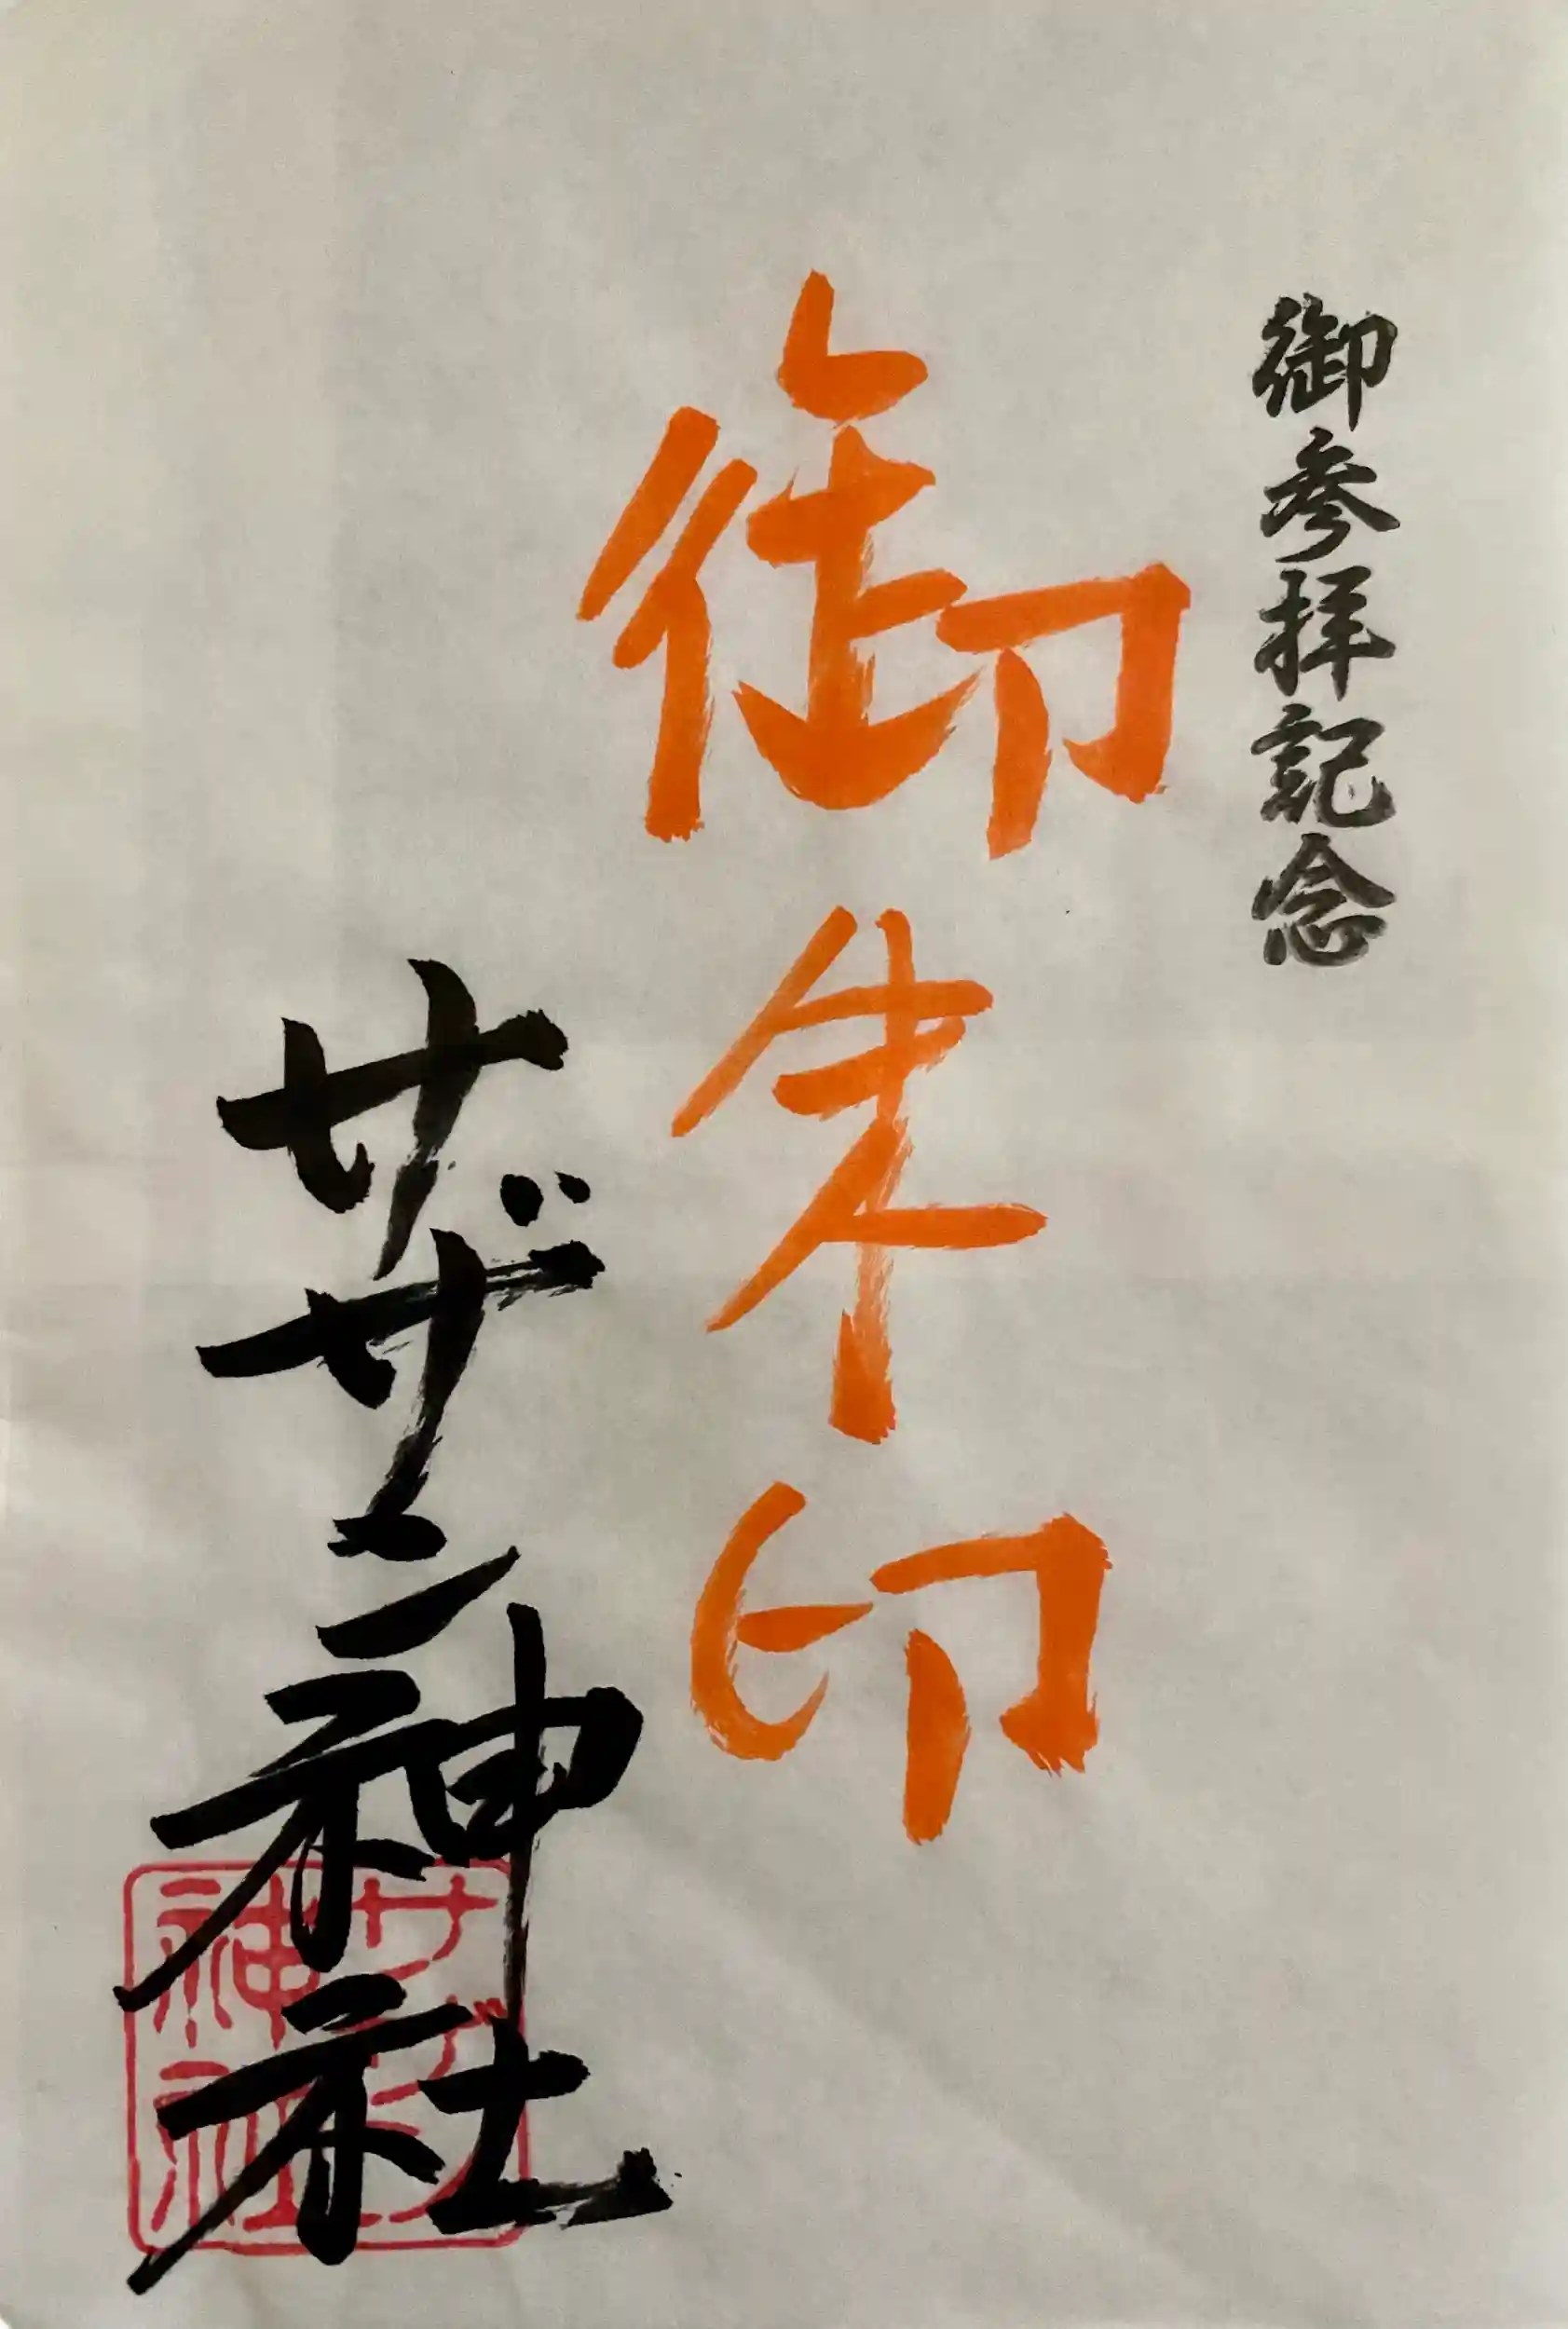 御参拝記念
御朱印
サザン神社
サザン神社